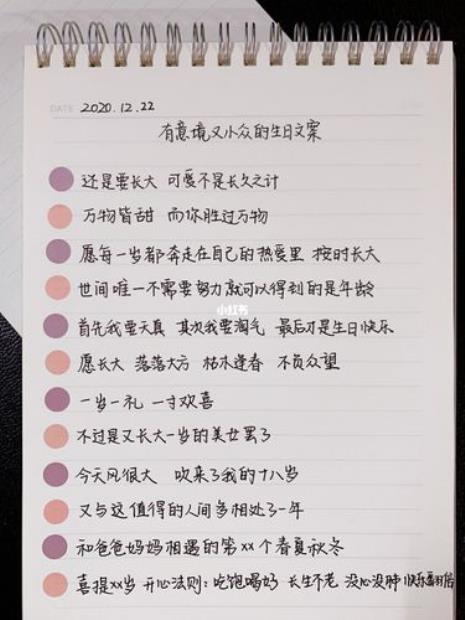 DATE 2020.12.22
有意境又小众的生日文案
还是要长大 可爱不是长久之计
万物皆甜 而你胜过万物
愿每一岁都奔走在自己的热爱里 按时长大
世间唯一不需要努力就可以得到的是年龄
小红书
首先我要天真 其次我要淘气 最后才是生日快乐
愿长大 落落大方 枯木逢春 不负众望
一岁一礼 一寸欢喜
不过是又长大一岁的美女罢了
今天风很大 吹来了我的十八岁
又与这值得的人间多相处了一年
和爸爸妈妈相遇的第xx个春夏秋冬
喜提xx岁 开心法则:吃饱喝好 长生不老 没心没肺 快乐翻倍